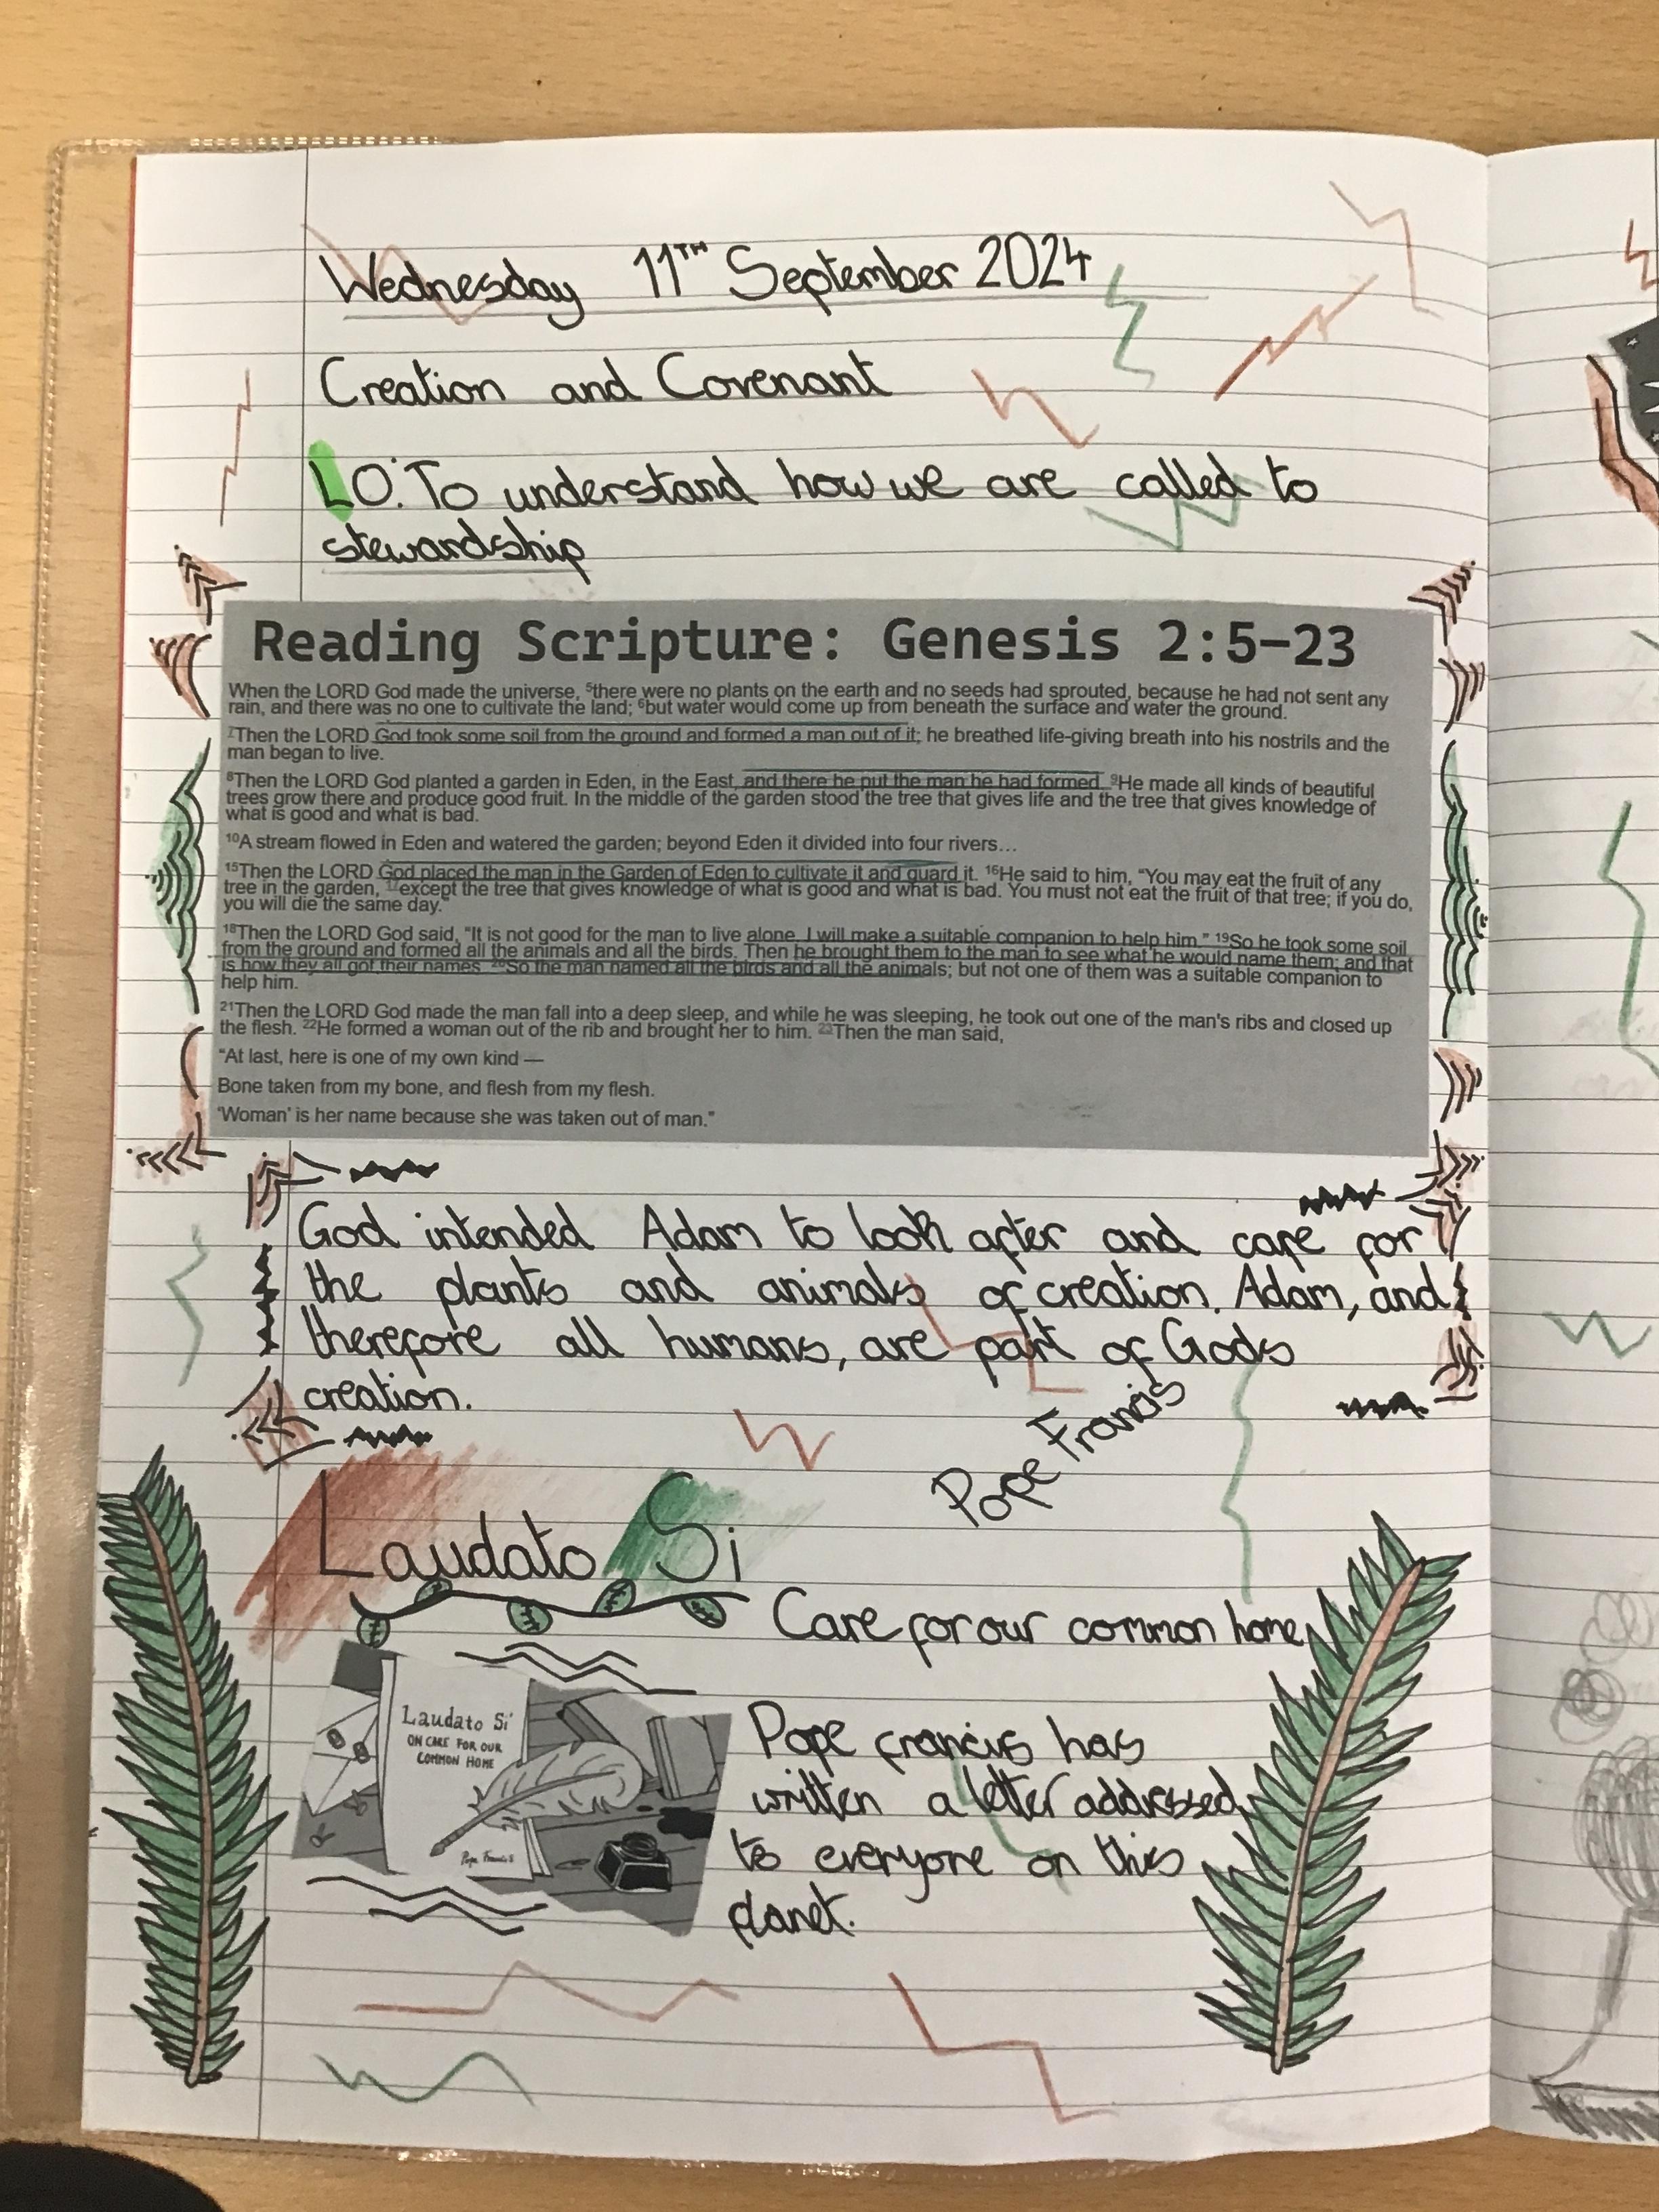 Wednesday 11TH September 2024
Creation and Covenant
LO: To understand how we are called to
stewardship
Reading Scripture: Genesis 2:5–23
When the LORD God made the universe, ⁵there were no plants on the earth and no seeds had sprouted, because he had not sent any
rain, and there was no one to cultivate the land; ⁶but water would come up from beneath the surface and water the ground.
⁷Then the LORD God took some soil from the ground and formed a man out of it; he breathed life-giving breath into his nostrils and the
man began to live.
⁸Then the LORD God planted a garden in Eden, in the East, and there he put the man he had formed. ⁹He made all kinds of beautiful
trees grow there and produce good fruit. In the middle of the garden stood the tree that gives life and the tree that gives knowledge of
what is good and what is bad.
¹⁰A stream flowed in Eden and watered the garden; beyond Eden it divided into four rivers…
¹⁵Then the LORD God placed the man in the Garden of Eden to cultivate it and guard it. ¹⁶He said to him, “You may eat the fruit of any
tree in the garden, ¹⁷except the tree that gives knowledge of what is good and what is bad. You must not eat the fruit of that tree; if you do,
you will die the same day.”
¹⁸Then the LORD God said, “It is not good for the man to live alone. I will make a suitable companion to help him.” ¹⁹So he took some soil
from the ground and formed all the animals and all the birds. Then he brought them to the man to see what he would name them; and that
is how they all got their names. ²⁰So the man named all the birds and all the animals; but not one of them was a suitable companion to
help him.
²¹Then the LORD God made the man fall into a deep sleep, and while he was sleeping, he took out one of the man's ribs and closed up
the flesh. ²²He formed a woman out of the rib and brought her to him. ²³Then the man said,
“At last, here is one of my own kind —
Bone taken from my bone, and flesh from my flesh.
‘Woman’ is her name because she was taken out of man.”
God intended Adam to look after and care for
the plants and animals of creation. Adam, and
therefore all humans, are part of Gods
creation.
Pope Francis
Laudato Si
Care for our common home
Laudato Si'
ON CARE FOR OUR
COMMON HOME
Pope Francis
Pope francis has
written a letter addressed
to everyone on this
planet.